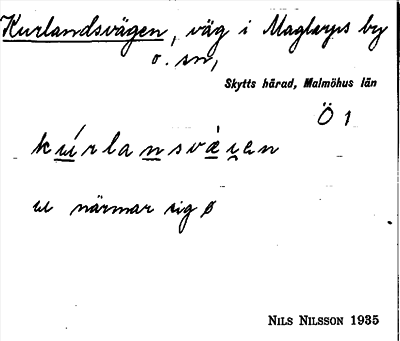 Kurlandsvägen, väg i Maglarps by
o. sn,
Skytts härad, Malmöhus län
Ö 1
kúrlansvæ̀ı̯en
u närmar sig ø
NILS NILSSON 1935